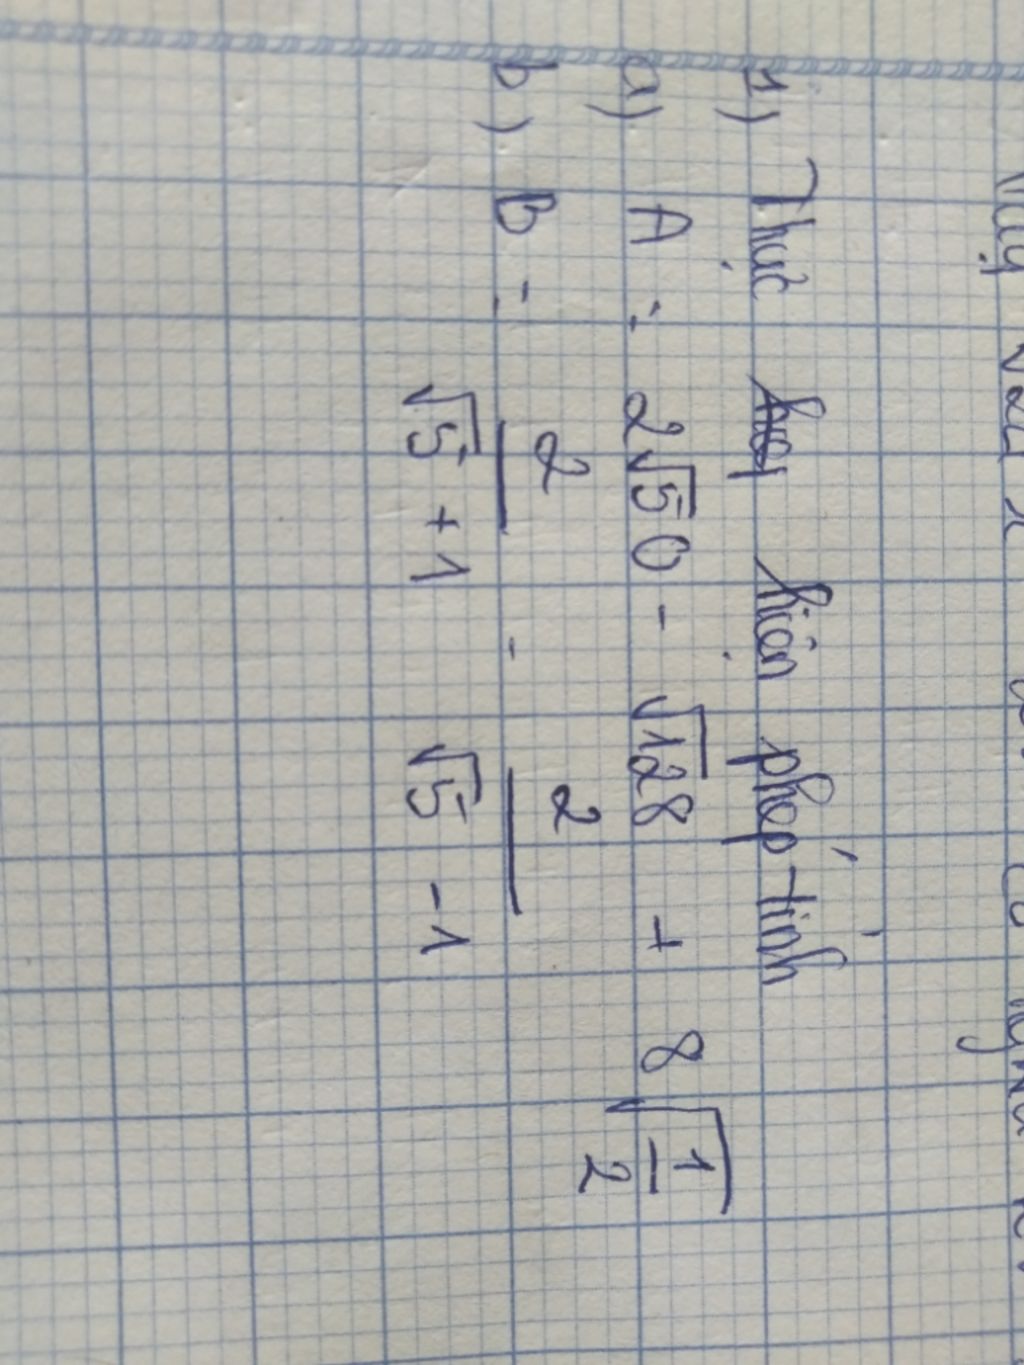 1) Thực hiện phép tính
a) A = 2√50 - √128 + 8√(1/2)
b) B = 2/(√5 + 1) - 2/(√5 - 1)